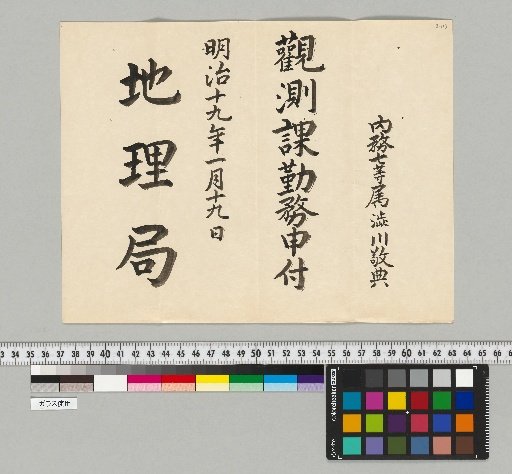 内務七等属 澁川敬典
觀測課勤務申付
明治十九年一月十九日
地理局
ガラス使用
33 34 35 36 37 38 39 40 41 42 43 44 45 46 47 48 49 50 51 52 53 54 55 56 57 58 59 60 61 62 63 64 65 66